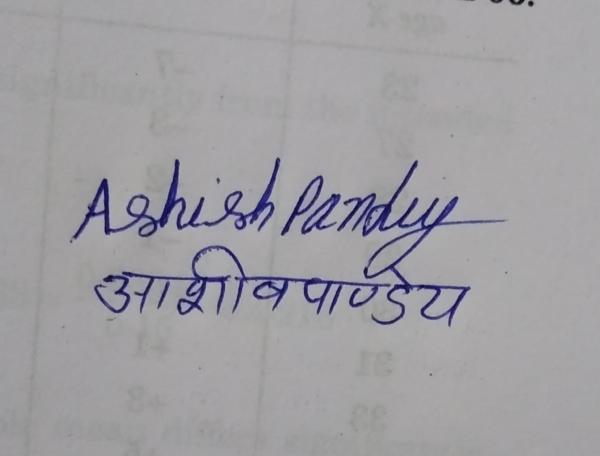 Ashish Pandey
आशीष पाण्डेय